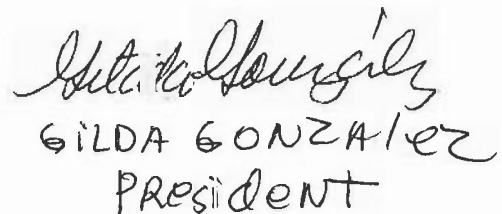 GILDA GONZAlez
PResideNT